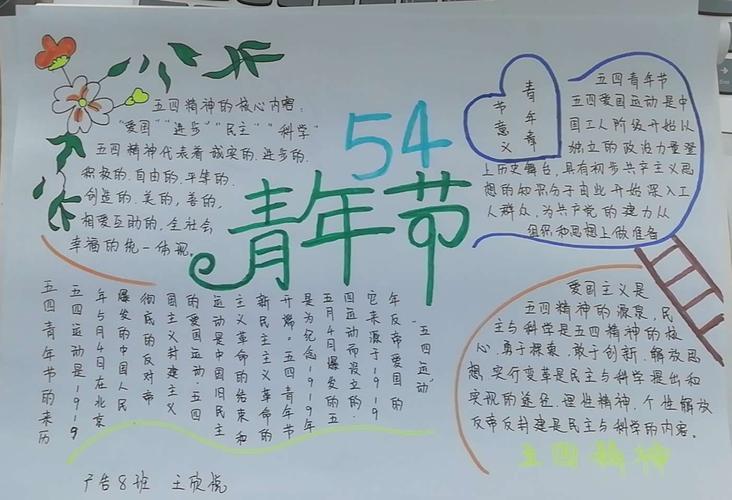 五四精神的核心内容:
"爱国""进步""民主""科学"
五四精神代表着诚实的.进步的.
积极的.自由的.平等的.
创造的.美的,善的,
相爱互助的.全社会
幸福的统一体现。
54
青年节
青年
节意义
五四青年节
五四爱国运动是中
国工人阶级开始从
独立的政治力量登
上历史舞台,具有初步共产主义思
想的知识分子由此开始深入工
人群众,为共产党的建力从
组织和思想上做准备
五四青年节的来历
五四运动是1919
年5月4日在北京
爆发的中国人民
彻底的反对帝
国主义封建主义
的爱国运动.五四
运动是中国旧民主
主义革命的结束和
新民主主义革命的
开端.五四青年节
是为纪念1919年
五月4日爆发的五
四运动而设立的.
它来源于1919
年反帝爱国的
"五四运动"
爱国主义是
五四精神的源泉,民
主与科学是五四精神的核
心,勇于探索,敢于创新,解放思
想,实行变革是民主与科学提出和
实现的途径,理性精神,个性解放
反帝反封建是民主与科学的内容。
五四精神
广告8班 王欣悦